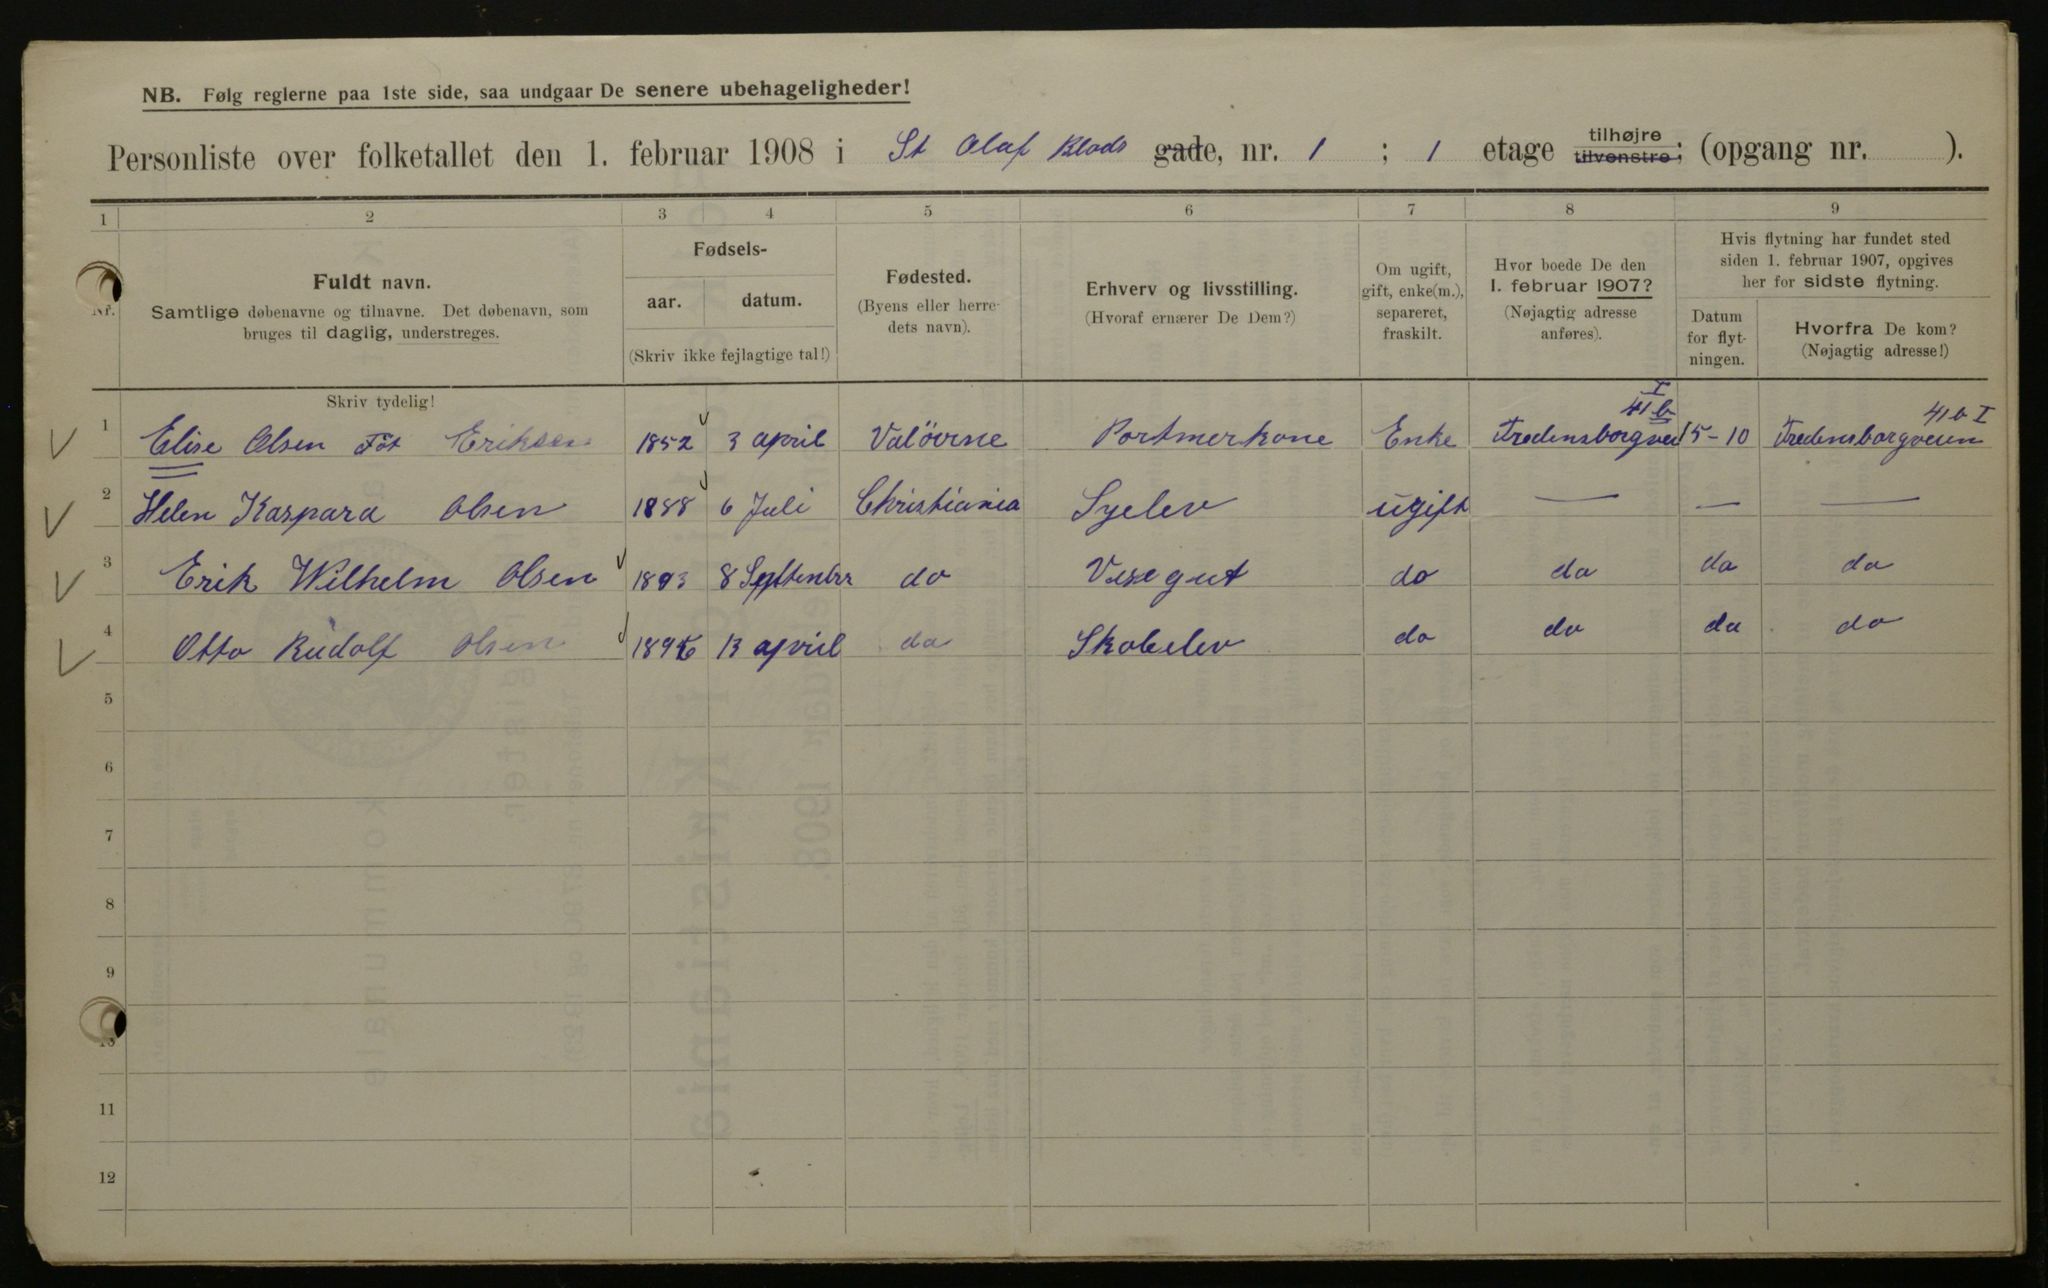 NB. Følg reglerne paa 1ste side, saa undgaar De senere ubehageligheder!
Personliste over folketallet den 1. februar 1908 i St Olaf Plads gade, nr. 1 ; 1 etage tilhøjre tilvenstre; (opgang nr. ).
1 2 3 4 5 6 7 8 9
Nr.
Fuldt navn.
Samtlige døbenavne og tilnavne. Det døbenavn, som
bruges til daglig, understreges.
Skriv tydelig!
Fødsels-
aar. datum.
(Skriv ikke fejlagtige tal!)
Fødested.
(Byens eller herre-
dets navn).
Erhverv og livsstilling.
(Hvoraf ernærer De Dem?)
Om ugift,
gift, enke(m.),
separeret,
fraskilt.
Hvor boede De den
1. februar 1907?
(Nøjagtig adresse
anføres).
Hvis flytning har fundet sted
siden 1. februar 1907, opgives
her for sidste flytning.
Datum
for flyt-
ningen.
Hvorfra De kom?
(Nøjagtig adresse!)
1 Elise Olsen Föt Eriksen 1852 3 april Valöerne Portnerkone Enke Fredensborgvei 41 b I 15-10 Fredensborgveien 41 b I
2 Helen Kaspara Olsen 1888 6 Juli Christiania Syelev ugift — — —
3 Erik Wilhelm Olsen 1893 8 September do Visegut do do do do
4 Otto Rudolf Olsen 1896 13 april do Skolelev do do do do
5
6
7
8
9
10
11
12